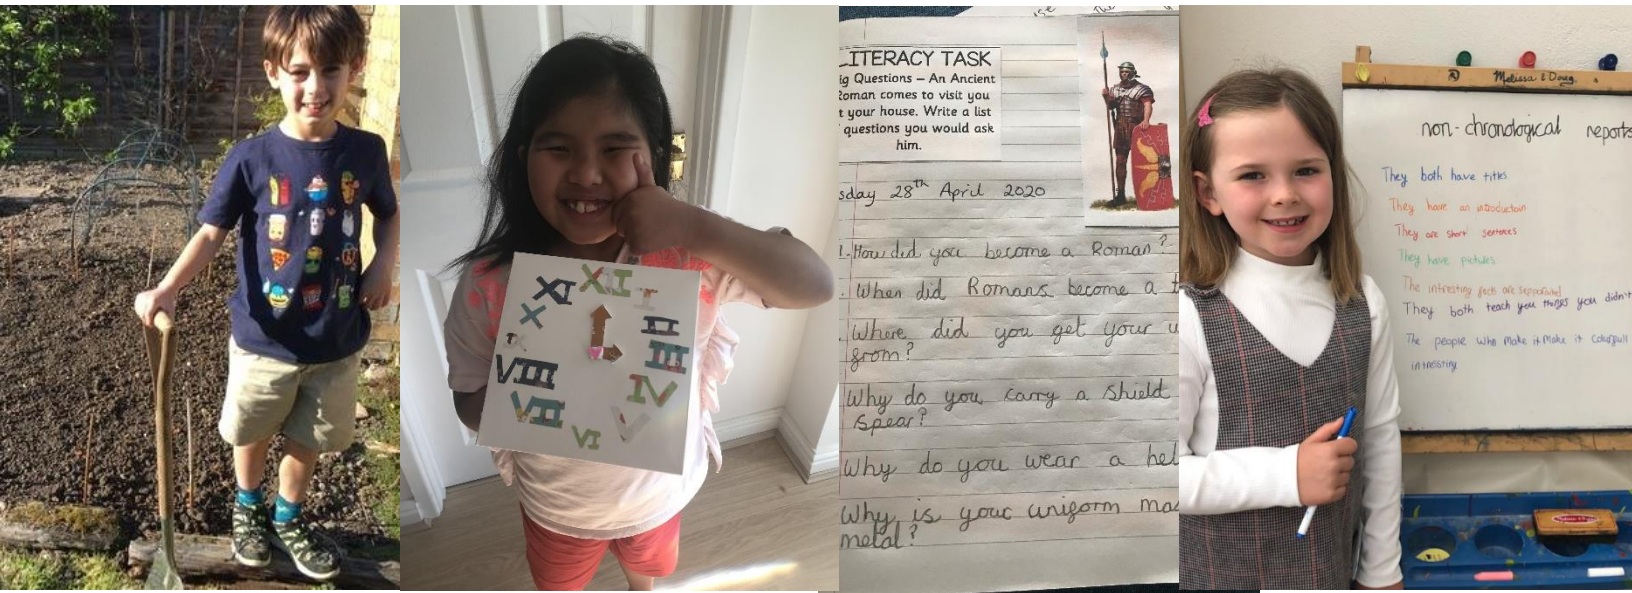 XII
I
II
III
IV
V
VI
VII
VIII
X
XI
LITERACY TASK
ig Questions – An Ancient
Roman comes to visit you
t your house. Write a list
questions you would ask
him.
sday 28th April 2020
1. How did you become a Roman?
. When did Romans become a t
. Where did you get your u
from?
Why do you carry a shield
spear?
Why do you wear a hel
Why is your uniform ma
metal?
Melissa & Doug
non-chronological reports
They both have titles.
They have an introduction
They are short sentences
They have pictures
The intresting facts are
They both teach you things you didn't
The people who make it make it
intresting